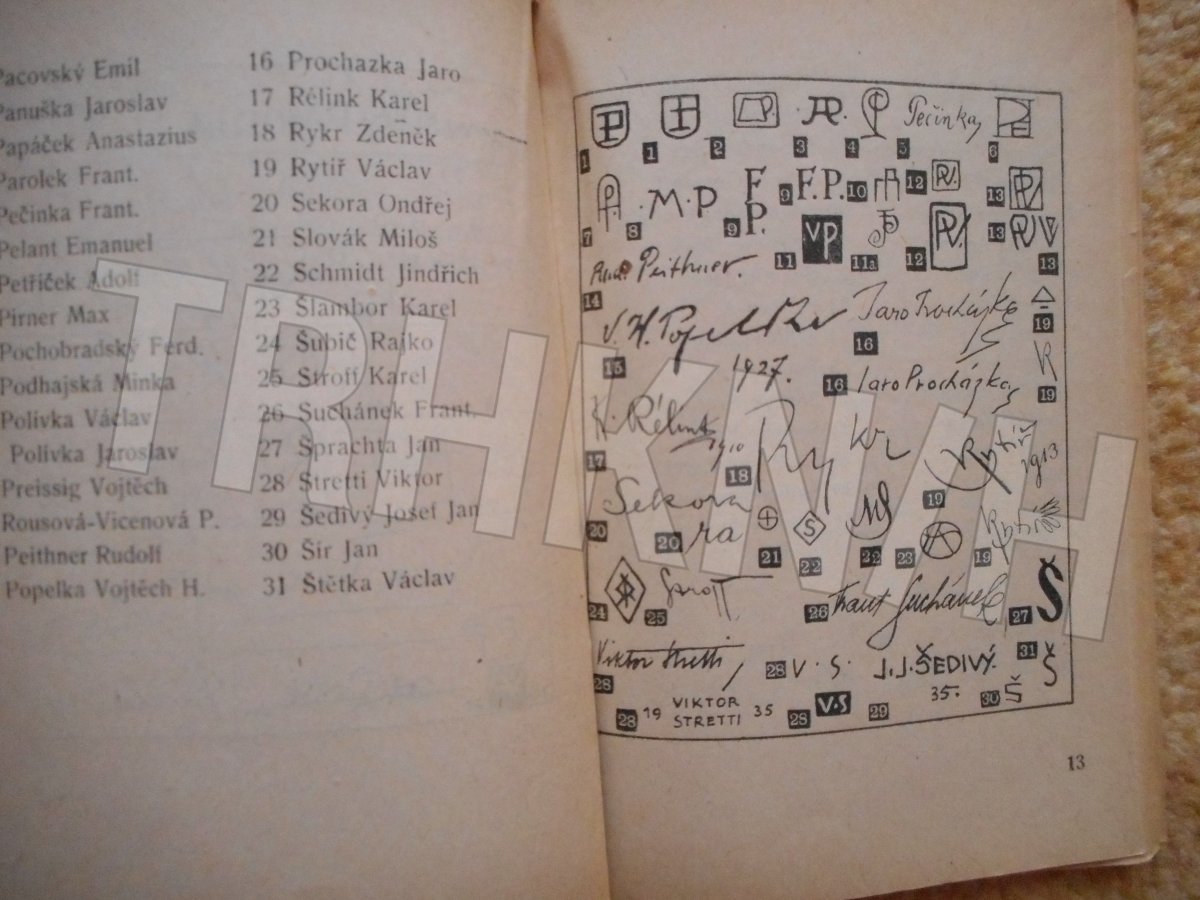 Pacovský Emil
Panuška Jaroslav
Papáček Anastazius
Parolek Frant.
Pečinka Frant.
Pelant Emanuel
Petříček Adolf
Pirner Max
Pochobradský Ferd.
Podhajská Minka
Polívka Václav
Polívka Jaroslav
Preissig Vojtěch
Rousová-Vicenová P.
Peithner Rudolf
Popelka Vojtěch H.
16 Prochazka Jaro
17 Rélink Karel
18 Rykr Zdeněk
19 Rytíř Václav
20 Sekora Ondřej
21 Slovák Miloš
22 Schmidt Jindřich
23 Šlambor Karel
24 Šubič Rajko
25 Stroff Karel
26 Suchánek Frant.
27 Šprachta Jan
28 Stretti Viktor
29 Šedivý Josef Jan
30 Šír Jan
31 Štětka Václav
Pečinka
1 1 2 3 4 5 6
M.P F.P. F.P.
7 8 9 9 10 12 13
VP
11 11a 12 13 13
Peithner.
14
V. H. Popelka Jaro Procházka
15 1927. 16 19
16 Jaro Procházka 19
K. Rélink 1910 Rykr Rytíř 1913
17 18 19
Sekora
20 20 ra 21 22 22 23 19 Rytíř
24 25 Stroff 26 Frant Suchánek 27 Š
Viktor Stretti 28 V.S. J.J.ŠEDIVÝ. 31 Š
28 35. 30 Š
28 19 VIKTOR STRETTI 35 28 V.S 29
13
TRHKNIH